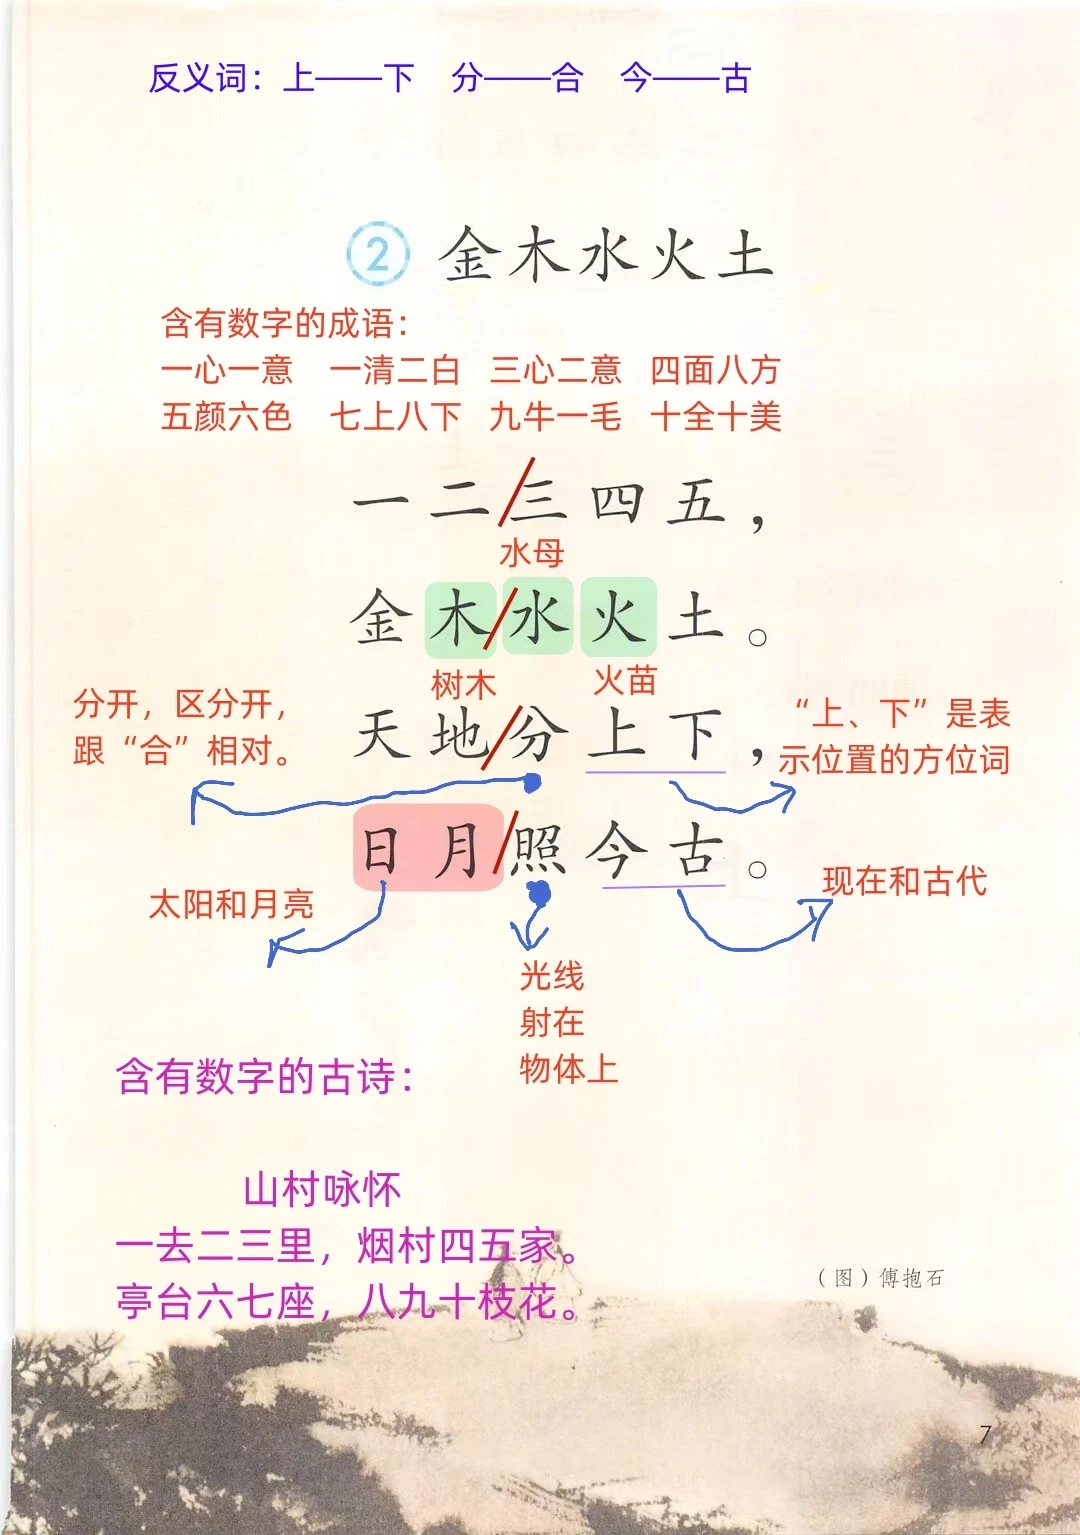 反义词：上——下 分——合 今——古
2 金木水火土
含有数字的成语：
一心一意 一清二白 三心二意 四面八方
五颜六色 七上八下 九牛一毛 十全十美
一二三四五，
水母
金木水火土。
树木 火苗
分开，区分开，
跟“合”相对。
天地分上下，
“上、下”是表
示位置的方位词
日月照今古。
太阳和月亮
现在和古代
光线
射在
物体上
含有数字的古诗：
山村咏怀
一去二三里，烟村四五家。
亭台六七座，八九十枝花。
（图）傅抱石
7